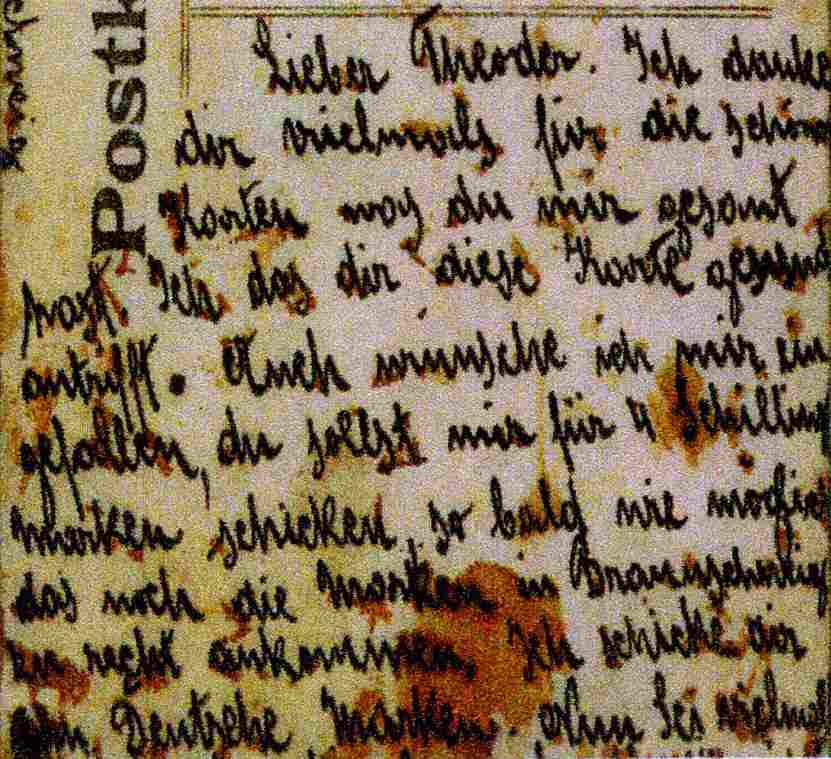 Postk
Lieber Theodor. Ich danke
dir vielmals für die schöne
Karten was du mir gesant
hast. Ich das dir diese Karte gesund
antrifft. Auch wünsche ich mir ein
gefallen, du sollst mir für 4 Schilling
marken schicken, so bald wie möglich
das noch die Marken in Braunschweig
zu recht ankommen. Ich schicke dir
Deutsche Marken. Nun sei vielmal